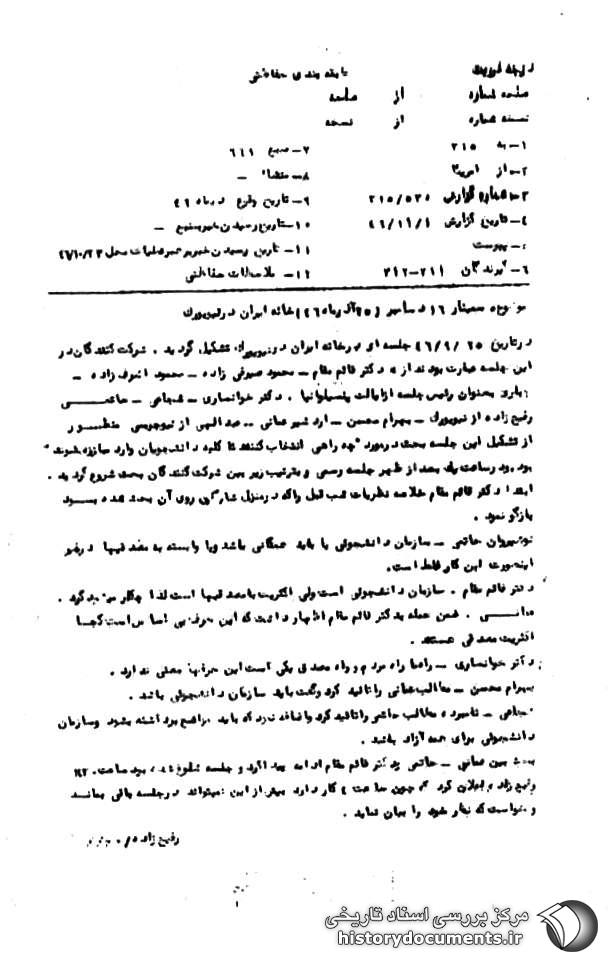 درجه فوریت طبقه بندی حفاظتی
صفحه شماره از صفحه
نسخه شماره از نسخه
۱- به ۳۱۵
۷- منبع ۶۶۱
۲- از امریکا
۸- منشاء -
۳- شماره گزارش ۲۱۵/۵۳۰
۹- تاریخ وقوع دیماه ۴۶
۴- تاریخ گزارش ۴۶/۱۱/۱
۱۰- تاریخ رسیدن خبر بمنبع -
۵- پیوست
۱۱- تاریخ رسیدن خبر برهبر عملیات محل ۴۶/۱۰/۲۳
۶- گیرندگان ۲۱۱-۳۱۲
۱۲- ملاحظات حفاظتی
موضوع سمینار ۱۶ دسامبر (۲۵ آذر ماه ۴۶) خانه ایران در نیویورک
در تاریخ ۴۶/۹/۲۵ جلسه ای در خانه ایران در نیویورک تشکیل گردید . شرکت کنندگان در
این جلسه عبارت بودند از : دکتر قائم مقام - محمود صیرفی زاده - محمود اشرف زاده -
بعنوان رئیس جلسه از ایالت پنسیلوانیا . دکتر خوانساری - شجاعی - حاتمی
رفیع زاده از نیویورک - بهرام محسن - اردشیر عمانی - عبدالهی از نیوجرسی منظور
از تشکیل این جلسه بحث در مورد "چه راهی انتخاب کنند تا کلیه دانشجویان وارد سازمان شوند"
بود و در ساعت یک بعد از ظهر جلسه رسمی و بترتیب زیر بین شرکت کنندگان بحث شروع گردید .
ابتدا دکتر قائم مقام خلاصه نظریات شب قبل را که در منزل روی آن بحث شده بود
بازگو نمود .
نوشیروان حاتمی - سازمان دانشجوئی یا باید همگانی باشد ویا وابسته به مصدقیها در غیر
اینصورت این کار غلط است .
دکتر قائم مقام . سازمان دانشجوئی است ولی اکثریت با مصدقیها است لذا چکار میشود کرد .
عمانی . ضمن حمله بدکتر قائم مقام اظهار داشت که این حرف بی اساس است کجا
اکثریت مصدقی هستند .
دکتر خوانساری - راه ما راه مردم و راه مصدق یکی است این حرفها معنی ندارد .
بهرام محسن - مطالب عمانی را تائید کرد وگفت باید سازمان دانشجوئی باشد .
شجاعی - نامبرده مطالب حاتمی را تائید کرد واضافه نمود که باید مواضع برداشته بشود وسازمان
دانشجوئی برای همه آزاد باشد .
بحث بین عمانی - حاتمی و دکتر قائم مقام ادامه پیدا کرد و جلسه شلوغ شد ، بود ساعت
رفیع زاده اعلان کرد که چون ساعت ۴ کار دارد بیش از این نمیتواند در جلسه باقی بماند
و خواست که نظر خود را بیان نماید .
رفیع زاده /
مرکز بررسی اسناد تاریخی
historydocuments.ir